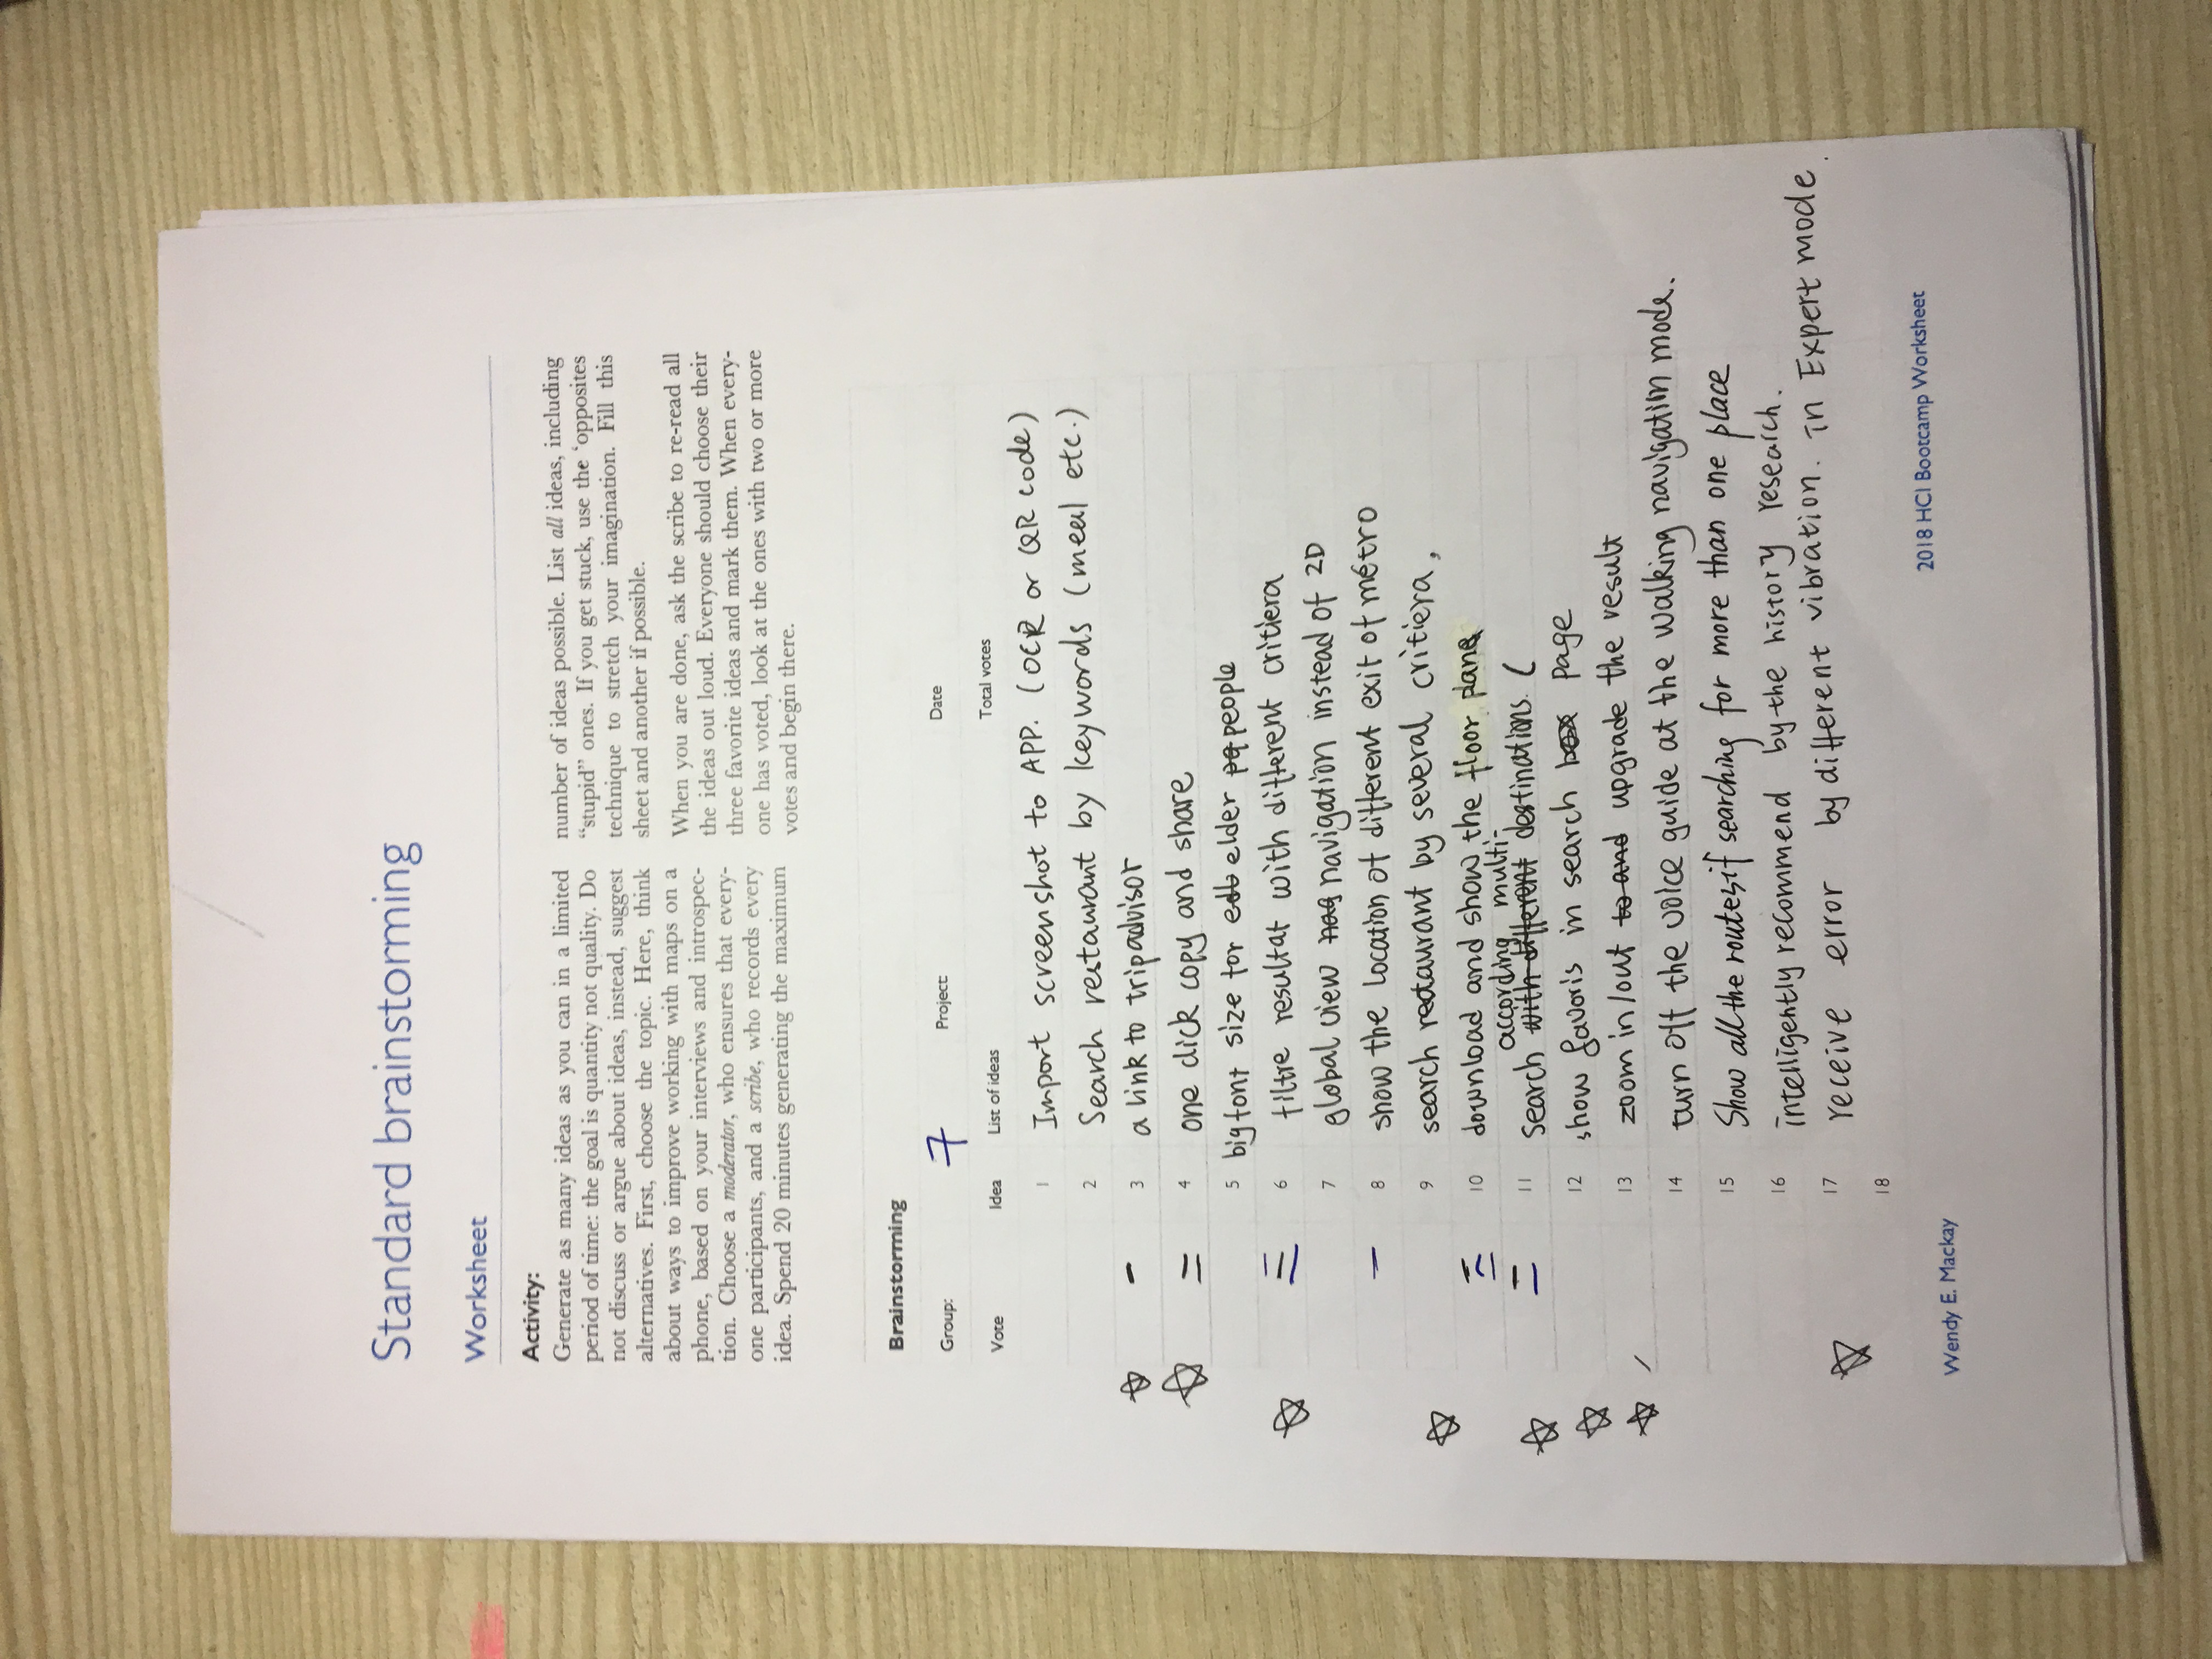 Standard brainstorming
Worksheet
Activity:
Generate as many ideas as you can in a limited
period of time: the goal is quantity not quality. Do
not discuss or argue about ideas, instead, suggest
alternatives. First, choose the topic. Here, think
about ways to improve working with maps on a
phone, based on your interviews and introspec-
tion. Choose a moderator, who ensures that every-
one participants, and a scribe, who records every
idea. Spend 20 minutes generating the maximum
number of ideas possible. List all ideas, including
“stupid” ones. If you get stuck, use the ‘opposites
technique to stretch your imagination. Fill this
sheet and another if possible.
When you are done, ask the scribe to re-read all
the ideas out loud. Everyone should choose their
three favorite ideas and mark them. When every-
one has voted, look at the ones with two or more
votes and begin there.
Brainstorming
Group: 7 Project: Date
Vote Idea List of ideas Total votes
1 Import screenshot to APP. (OCR or QR code)
2 Search restaurant by keywords (meal etc.)
3 a link to tripadvisor
4 one click copy and share
5 big font size for elder people
6 filtre resultat with different critiera
7 global view navigation instead of 2D
8 show the location of different exit of métro
9 search restaurant by several critiera,
10 download and show the floor plane
according multi-
11 Search with different destinations. (
12 show favoris in search box page
13 zoom in/out to and upgrade the result
14 turn off the voice guide at the walking navigation mode.
15 Show all the routes if searching for more than one place
16 intelligently recommend by the history research.
17 receive error by different vibration. in Expert mode.
18
Wendy E. Mackay
2018 HCI Bootcamp Worksheet